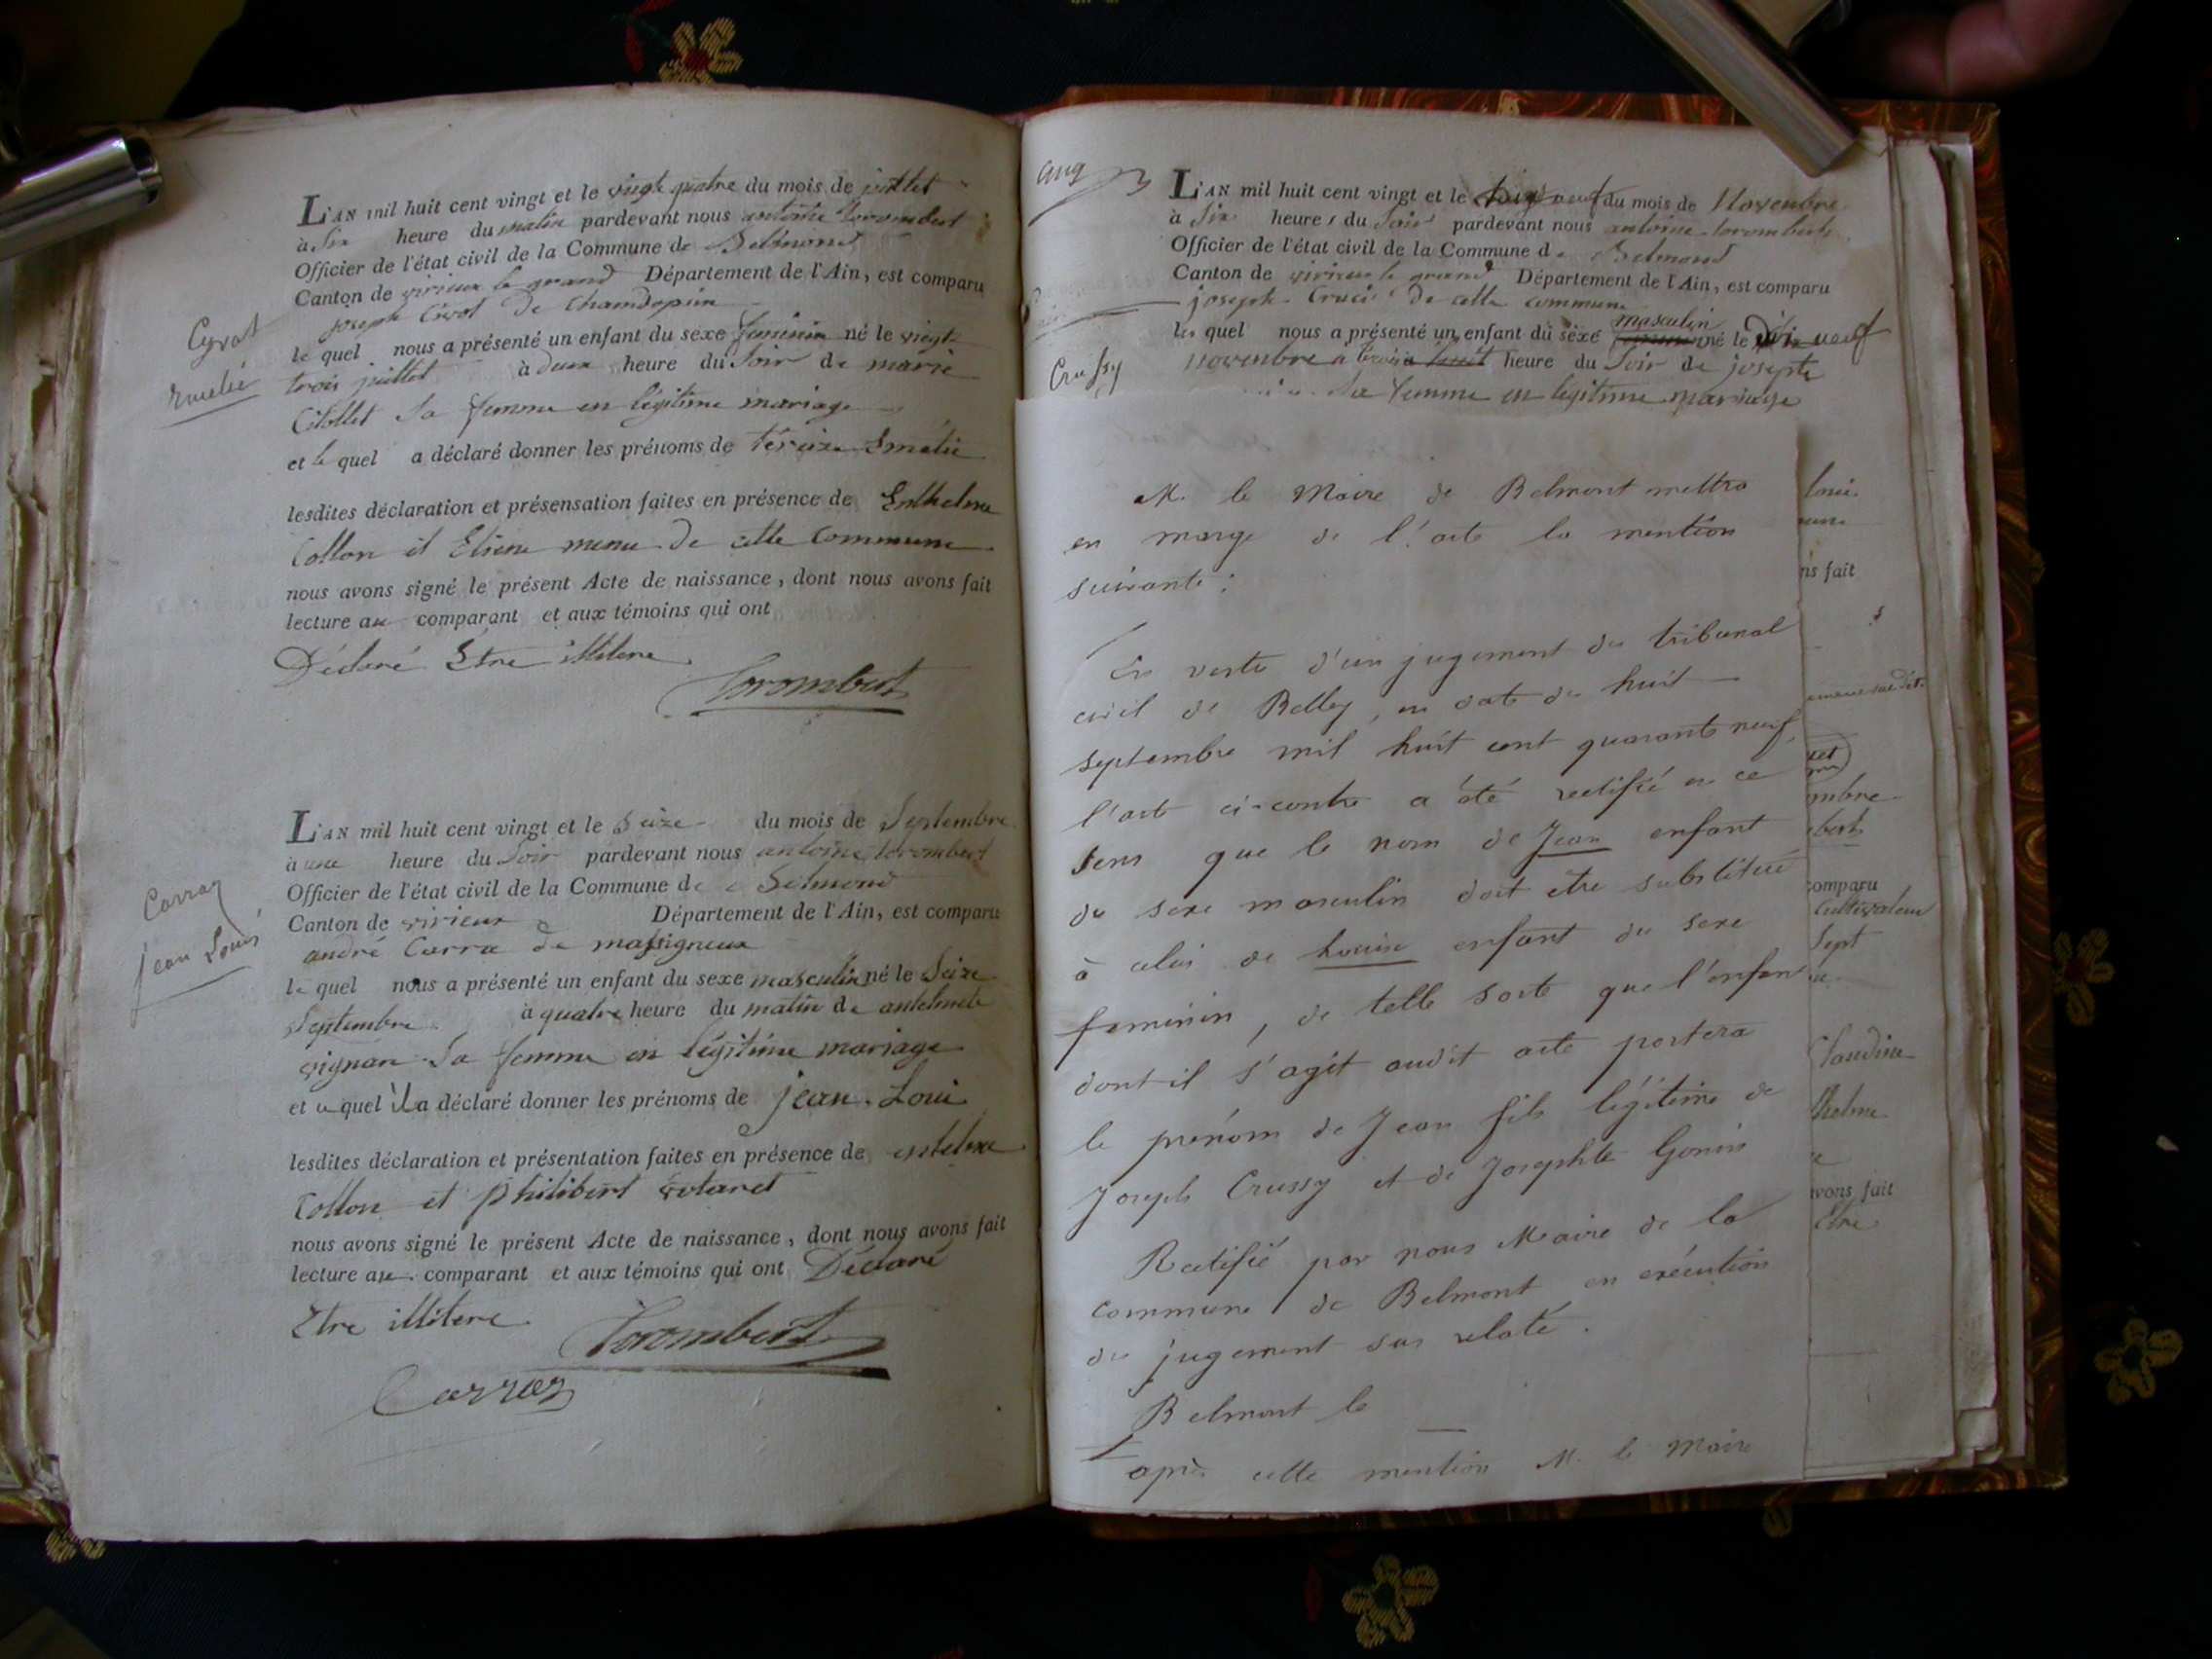 L'AN mil huit cent vingt et le vingt quatre du mois de juillet
à Six heure du matin pardevant nous antoine torombert
Officier de l'état civil de la Commune de Belmond
Canton de virieux le grand Département de l'Ain, est comparu
joseph Civot de Chamdopin
le quel nous a présenté un enfant du sexe feminin né le vingt
Cyvat
Emelié
trois juillet à deux heure du Soir de marie
Citollet Sa femme en légitime mariage
et le quel a déclaré donner les prénoms de téréize Emélie
lesdites déclaration et présensation faites en présence de Enthelme
Collon et Etiene menu de cette Commune
nous avons signé le présent Acte de naissance, dont nous avons fait
lecture au comparant et aux témoins qui ont
Déclaré Etre illitere
Torombert
L'AN mil huit cent vingt et le Seize du mois de Septembre
à une heure du Soir pardevant nous antoine torombert
Officier de l'état civil de la Commune de Belmond
Carraz
jean Louis
Canton de virieux Département de l'Ain, est comparu
andré Carra de massigneux
le quel nous a présenté un enfant du sexe masculin né le Seize
Septembre à quatre heure du matin de antelmete
vignan Sa femme en légitime mariage
et le quel il a déclaré donner les prénoms de jean Loui
lesdites déclaration et présentation faites en présence de entelme
Collon et philibert
nous avons signé le présent Acte de naissance, dont nous avons fait
lecture au comparant et aux témoins qui ont Déclaré
Etre illitere
Torombert
Carraz
L'AN mil huit cent vingt et le du mois de Novembre
à Six heures du Soir pardevant nous antoine torombert
Officier de l'état civil de la Commune de Belmond
Canton de virieux le grand Département de l'Ain, est comparu
joseph Cruci de cette commune
le quel nous a présenté un enfant du sexe masculin né le Dix neuf
Crussy
novembre a trois heure du Soir de josepte
Sa femme en légitime mariage
M. le Maire de Belmont mettra
en marge de l'acte la mention
suivante :
En vertu d'un jugement du tribunal
civil de Belley, en date du huit
septembre mil huit cent quarante neuf,
l'acte ci-contre a été rectifié en ce
sens que le nom de Jean enfant
du sexe masculin doit être substitué
à celui de Louise enfant du sexe
feminin, de telle sorte que l'enfant
dont il s'agit audit acte portera
le prénom de Jean fils légitime de
Joseph Crussy et de Josephte Gonin
Rectifié par nous Maire de la
commune de Belmont en exécution
du jugement sus relaté.
Belmont le
après cette mention M. le Maire
ns fait
comparu
Cultivateur
Sept
Claudine
avons fait
Etre